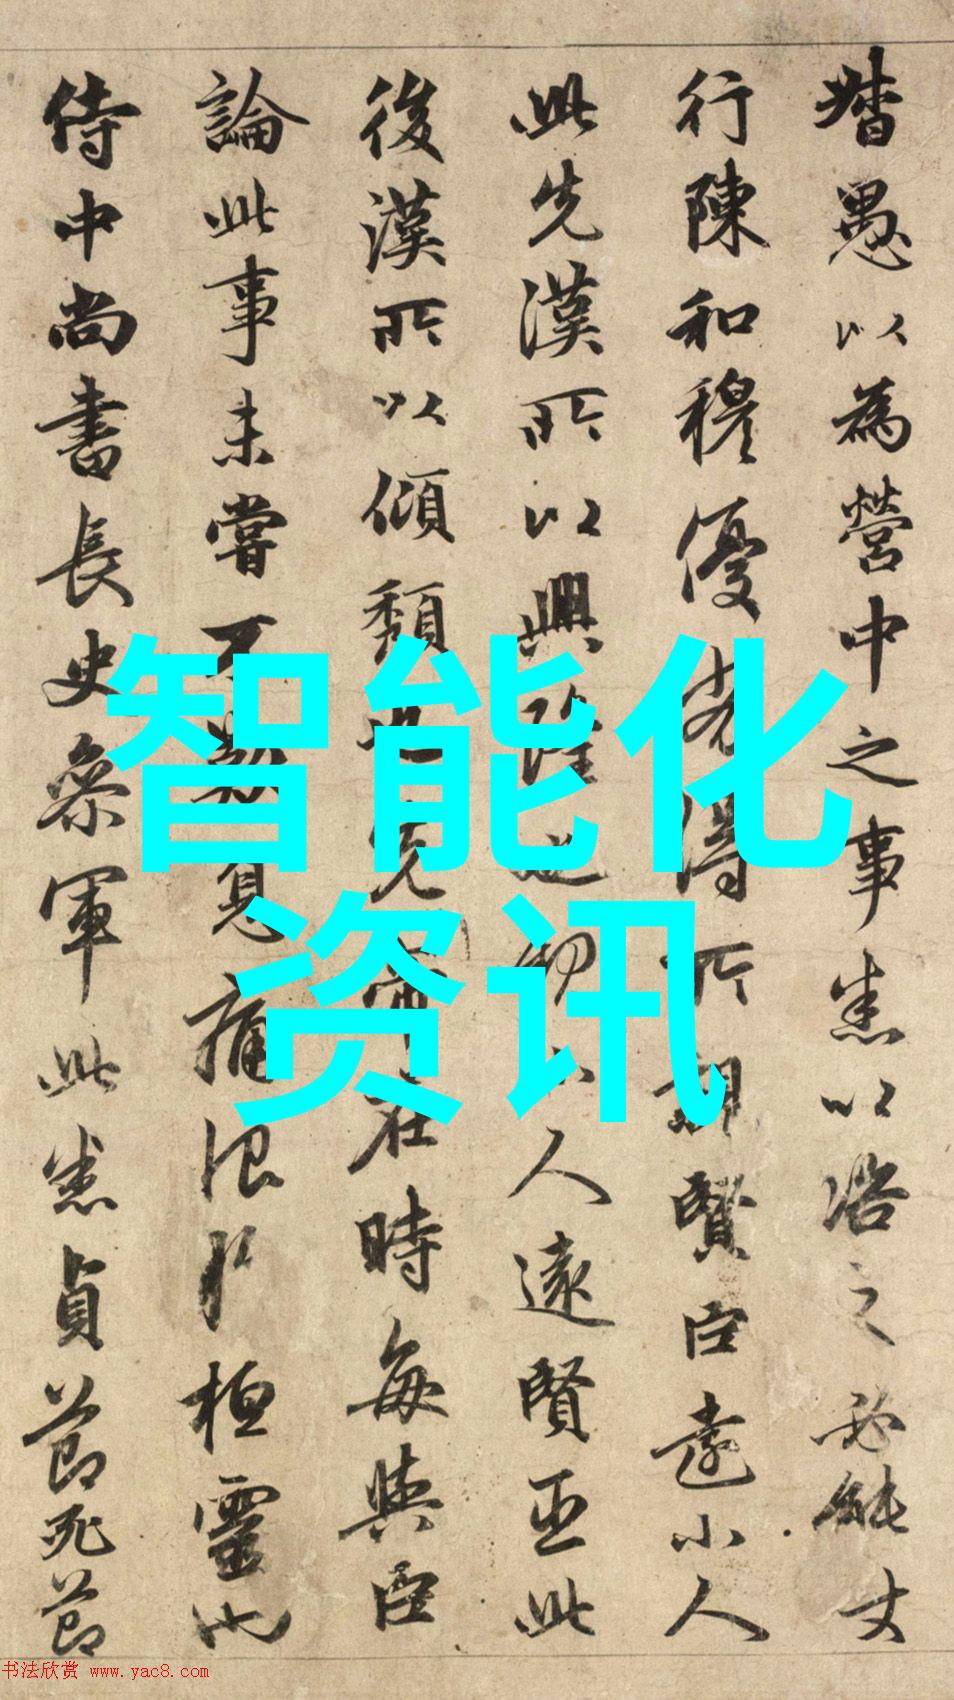 智能化
资讯
督愚以為營中之事悉以咨之必能
行陳和穆優劣得所親賢臣遠小人
此先漢所以興隆也親小人遠賢臣此
後漢所以傾頹也先帝在時每與臣
論此事未嘗不歎息痛恨於桓靈也
侍中尚書長史參軍此悉貞節死節
书法欣赏 www.yac8.com